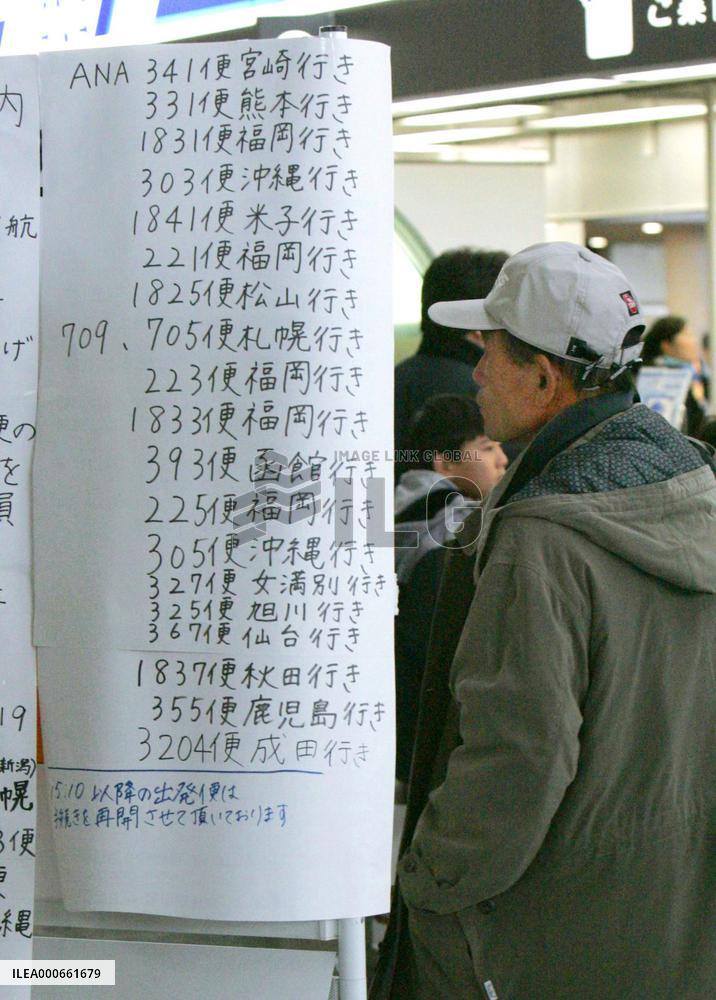 ご来
内
航
ANA 341便宮崎行き
331便熊本行き
1831便福岡行き
303便沖縄行き
1841便米子行き
221便福岡行き
1825便松山行き
709、705便札幌行き
223便福岡行き
1833便福岡行き
393便函館行き
225便福岡行き
305便沖縄行き
327便女満別行き
325便旭川行き
367便仙台行き
1837便秋田行き
355便鹿児島行き
3204便成田行き
15:10以降の出発便は
手続きを再開させて頂いております
げ
便の
を
員
19
新潟)
幌
3便
縄
IMAGE LINK GLOBAL
ILG
ILEA000661679